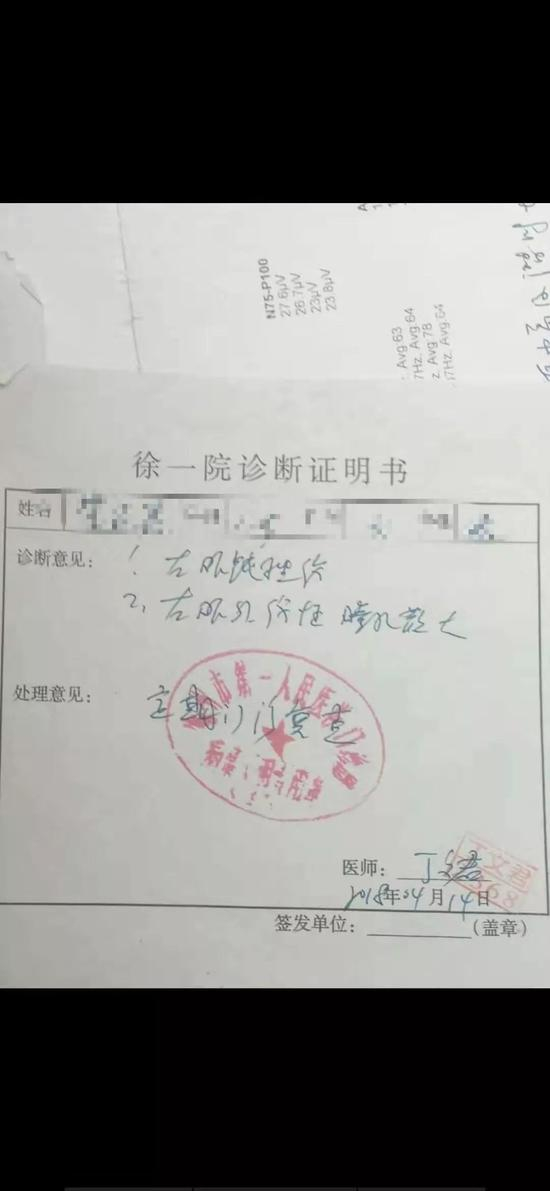 N75-P100
27.6μV
26.7μV
23μV
23.8μV
Avg:63
7Hz, Avg:64
z, Avg:78
17Hz, Avg:64
徐一院诊断证明书
姓名
诊断意见： 1. 右眼钝挫伤
2、右眼外伤性瞳孔散大
处理意见： 定期门诊复查
市第一人民医
医师： 丁文君
丁文君
368
2018年04月14日
签发单位： (盖章)